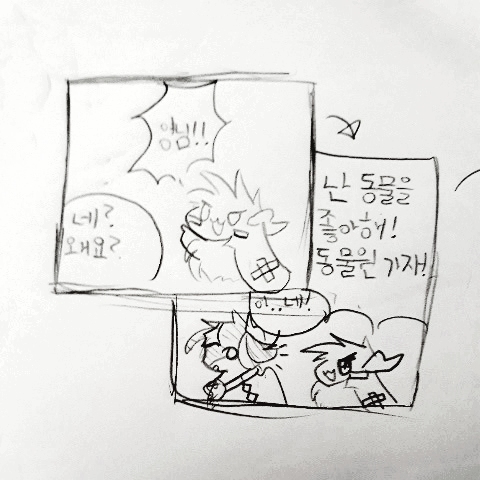 양님!!
네?
왜요?
난 동물을
좋아해!
동물원 가재!
아..네!